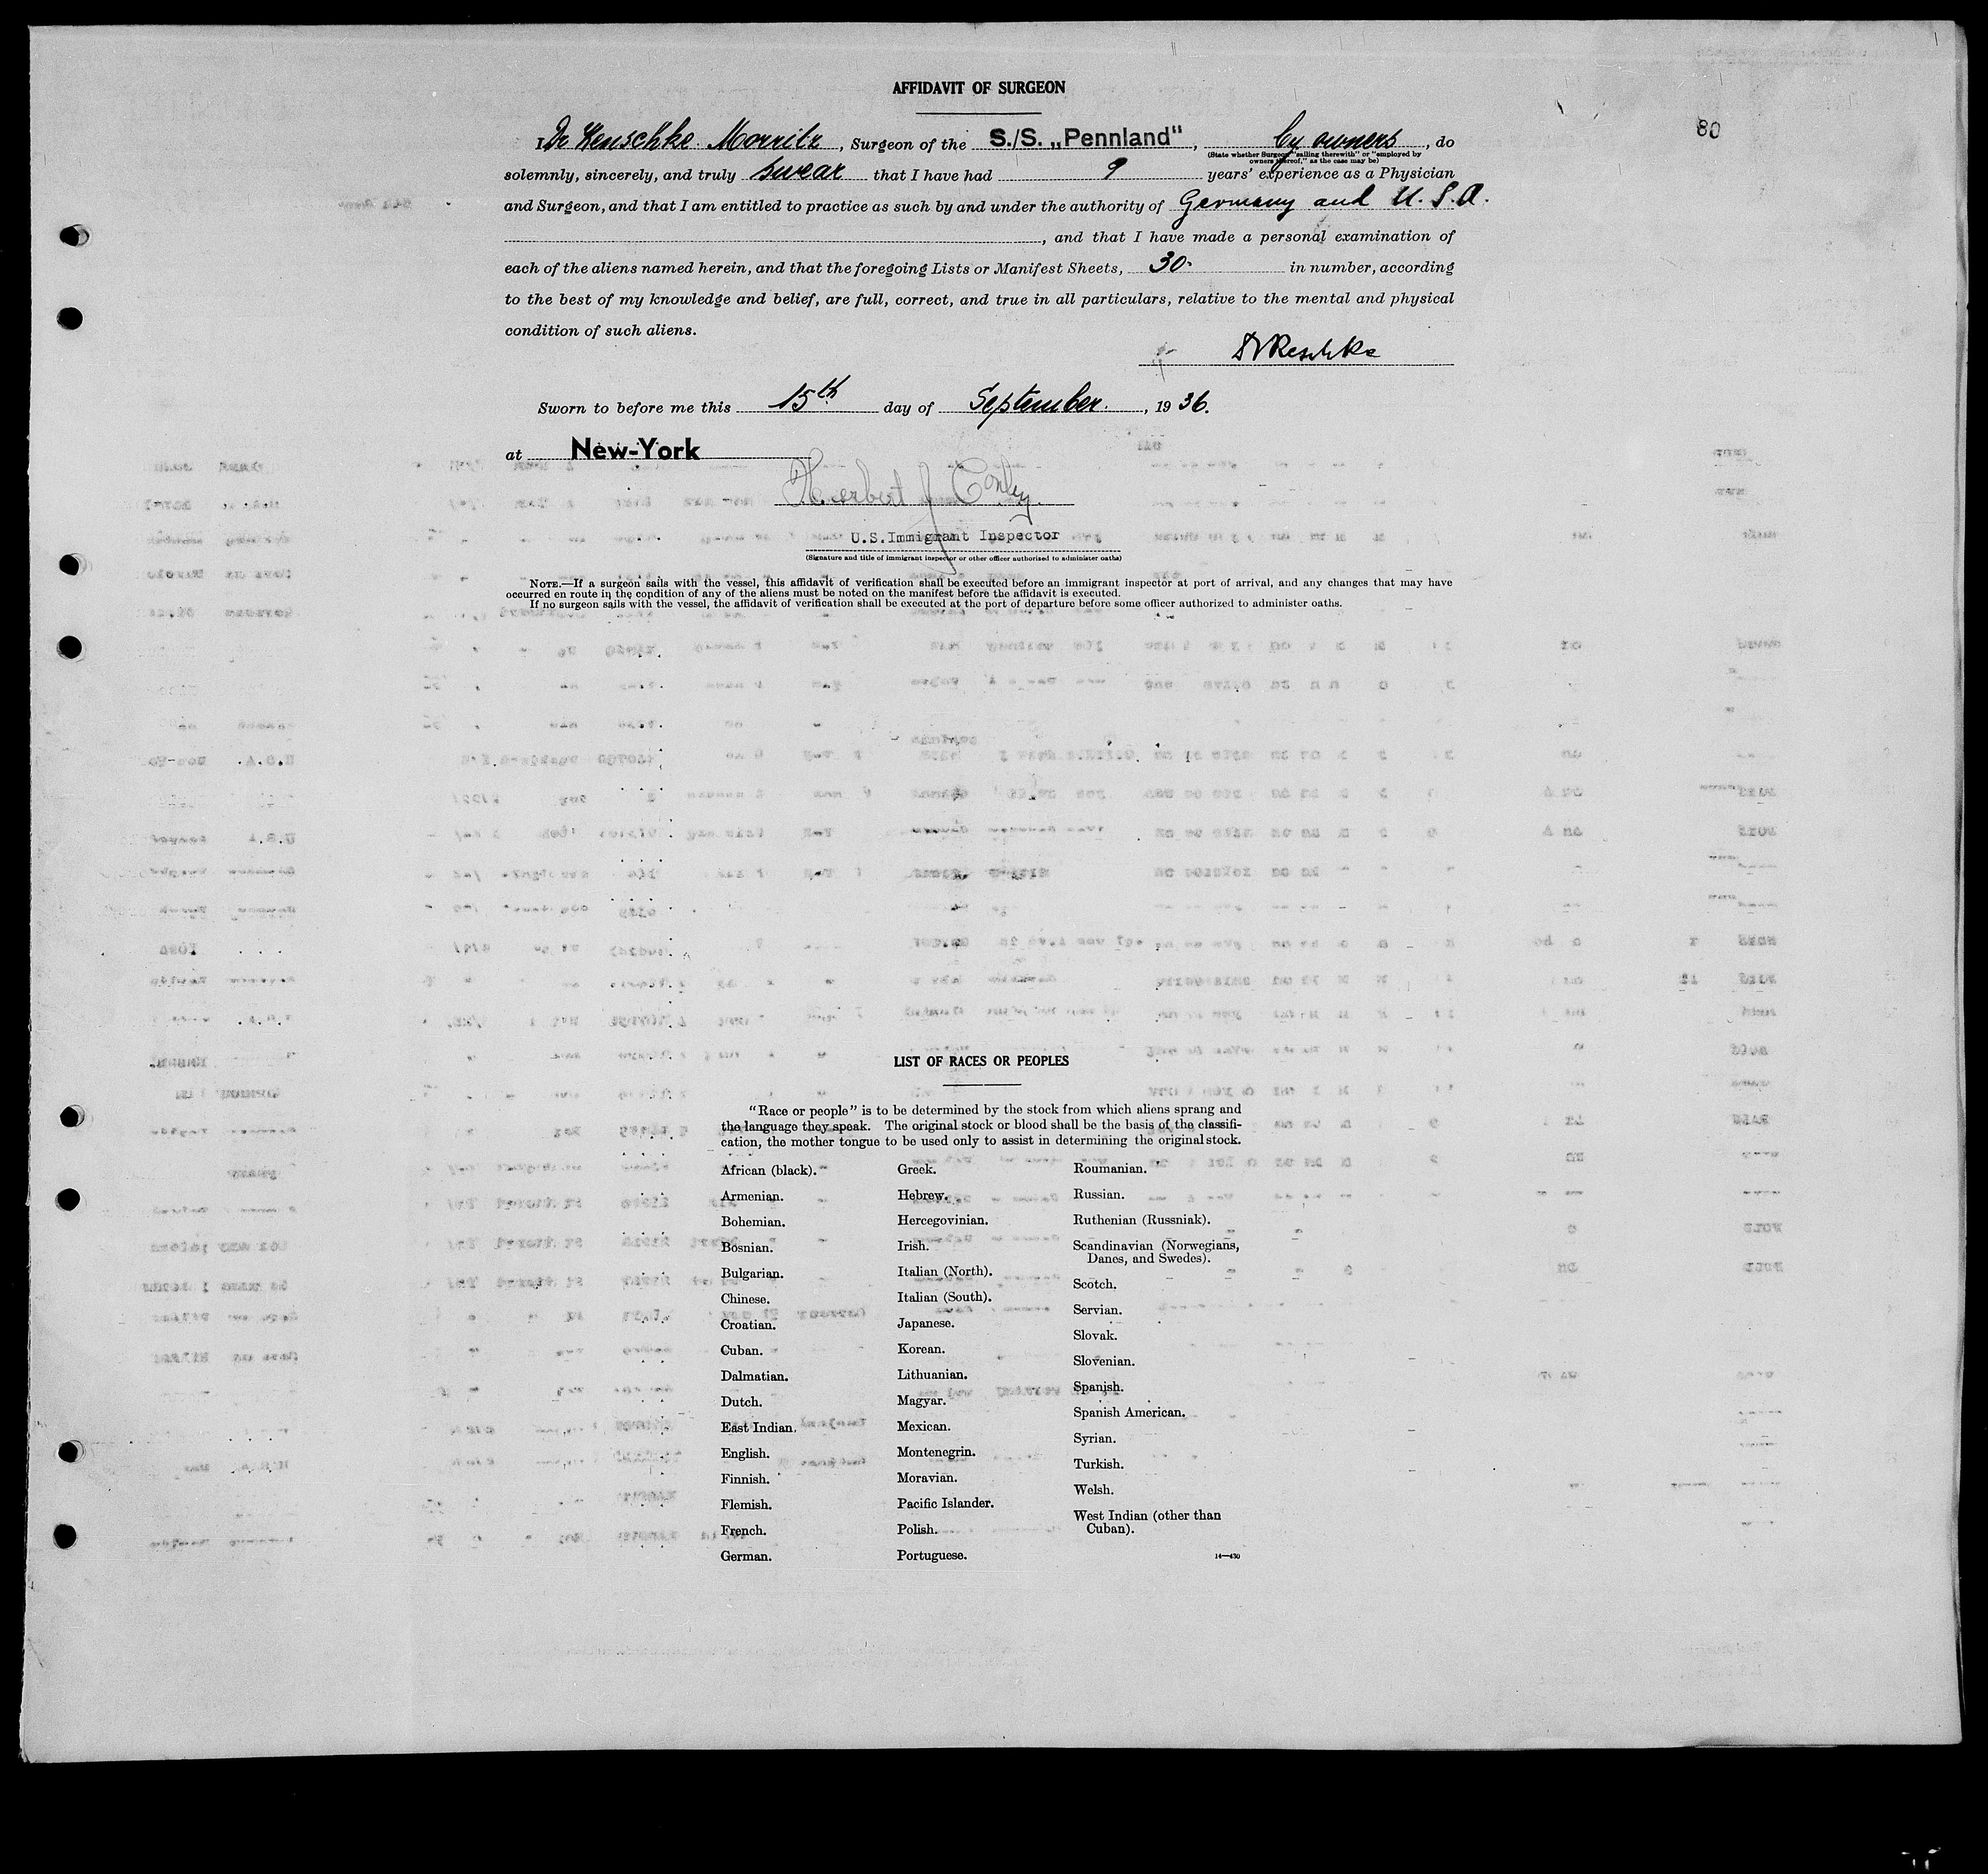 AFFIDAVIT OF SURGEON
80
I, Dr Henschke Morritz, Surgeon of the S./S. „Pennland", by owners, do
(State whether Surgeon "sailing therewith" or "employed by
owners thereof," as the case may be)
solemnly, sincerely, and truly swear that I have had 9 years' experience as a Physician
and Surgeon, and that I am entitled to practice as such by and under the authority of Germany and U.S.A.
, and that I have made a personal examination of
each of the aliens named herein, and that the foregoing Lists or Manifest Sheets, 30 in number, according
to the best of my knowledge and belief, are full, correct, and true in all particulars, relative to the mental and physical
condition of such aliens.
Sworn to before me this 15th day of September, 1936.
at New-York
Herbert J Conley
U.S.Immigrant Inspector
(Signature and title of immigrant inspector or other officer authorized to administer oaths)
NOTE.—If a surgeon sails with the vessel, this affidavit of verification shall be executed before an immigrant inspector at port of arrival, and any changes that may have
occurred en route in the condition of any of the aliens must be noted on the manifest before the affidavit is executed.
If no surgeon sails with the vessel, the affidavit of verification shall be executed at the port of departure before some officer authorized to administer oaths.
LIST OF RACES OR PEOPLES
"Race or people" is to be determined by the stock from which aliens sprang and
the language they speak. The original stock or blood shall be the basis of the classifi-
cation, the mother tongue to be used only to assist in determining the original stock.
African (black).
Armenian.
Bohemian.
Bosnian.
Bulgarian.
Chinese.
Croatian.
Cuban.
Dalmatian.
Dutch.
East Indian.
English.
Finnish.
Flemish.
French.
German.
Greek.
Hebrew.
Hercegovinian.
Irish.
Italian (North).
Italian (South).
Japanese.
Korean.
Lithuanian.
Magyar.
Mexican.
Montenegrin.
Moravian.
Pacific Islander.
Polish.
Portuguese.
Roumanian.
Russian.
Ruthenian (Russniak).
Scandinavian (Norwegians,
Danes, and Swedes).
Scotch.
Servian.
Slovak.
Slovenian.
Spanish.
Spanish American.
Syrian.
Turkish.
Welsh.
West Indian (other than
Cuban).
14—430